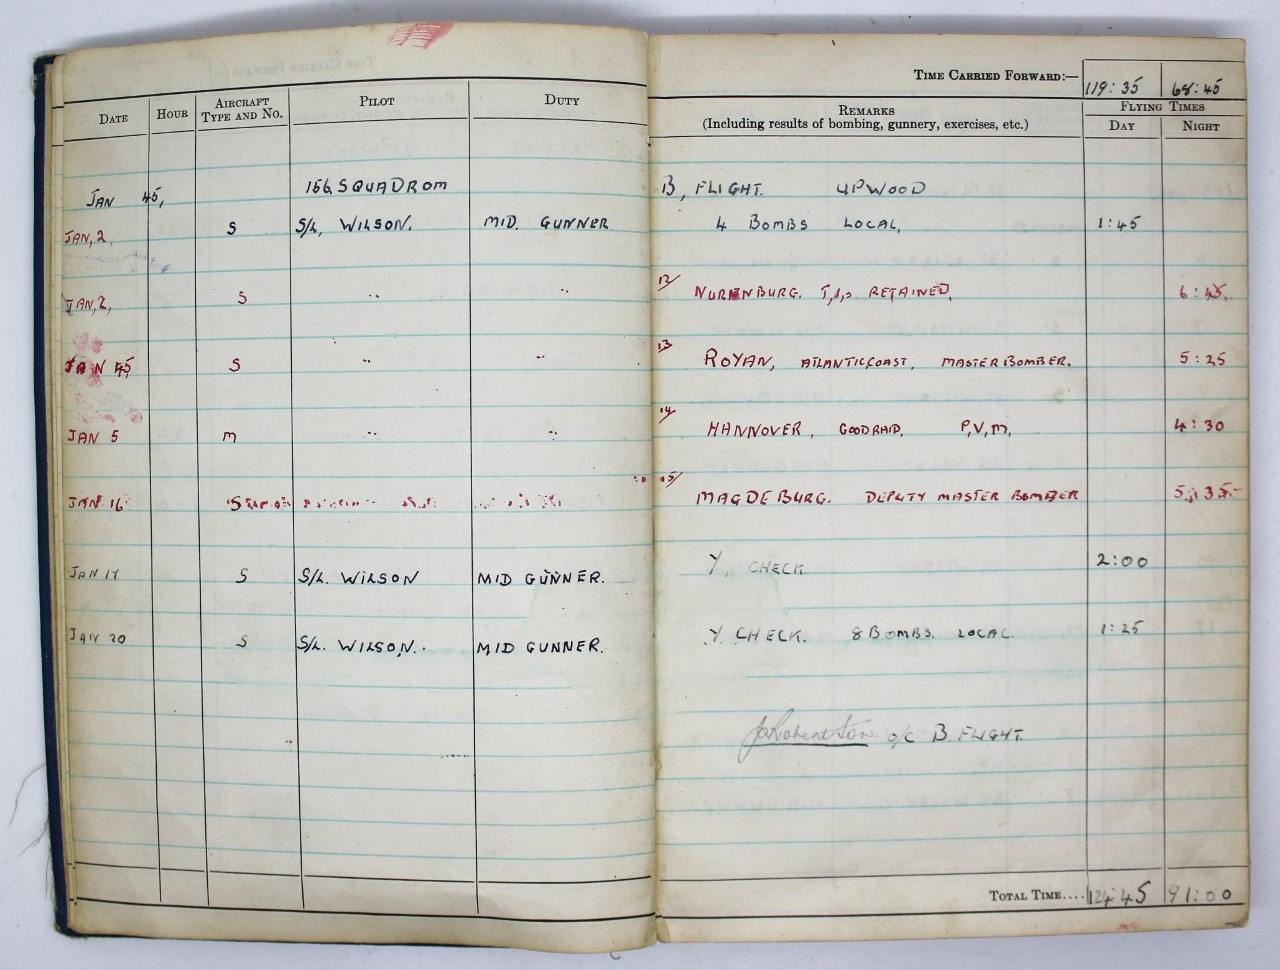 TIME CARRIED FORWARD:— 119:35 68:45
DATE HOUR AIRCRAFT TYPE AND NO. PILOT DUTY REMARKS (Including results of bombing, gunnery, exercises, etc.) FLYING TIMES DAY NIGHT
JAN 45, 156 SQUADROM B, FLIGHT. UPWOOD
JAN, 2, S S/L, WILSON. MID. GUNNER 4 BOMBS LOCAL, 1:45
JAN, 2, S " " 12/ NURENBURG. T,I,s RETAINED, 6:45
JAN 45 S " " 13 ROYAN, ATLANTIC COAST, MASTER BOMBER. 5:25
JAN 5 M " " 14/ HANNOVER, GOOD RAID, P,V,M, 4:30
JAN 16 S 15/ MAGDEBURG. DEPUTY MASTER BOMBER 5:35
JAN 17 S S/L. WILSON MID GUNNER. Y, CHECK 2:00
JAN 20 S S/L. WILSON. MID GUNNER. Y CHECK. 8 BOMBS. LOCAL. 1:25
O/C B. FLIGHT.
TOTAL TIME.... 124:45 91:00